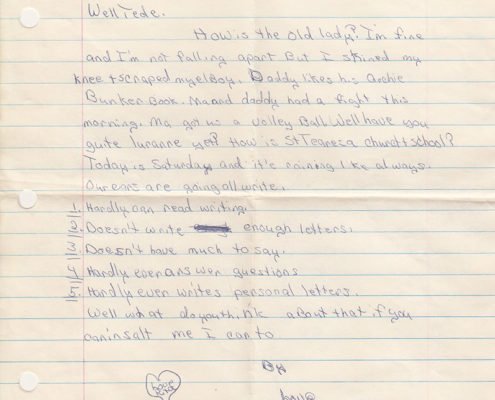 Well Tede.
How is the old lady? I'm fine
and I'm not falling apart But I skined my
knee + scraped my elboy. Daddy likes his Archie
Bunker Book. Ma and daddy had a fight this
morning. Ma got us a Volley Ball. Well have you
yet? How is St Tearesa church + school?
Today is Saturday and it's raining like always.
Our ears are going all write.
1. Hardly can read writing.
2. Doesn't write enough letters.
3. Doesn't have much to say.
4. Hardly ever answer questions
5. Hardly ever writes personal letters.
Well what do you think about that if you
can insalt me I can to